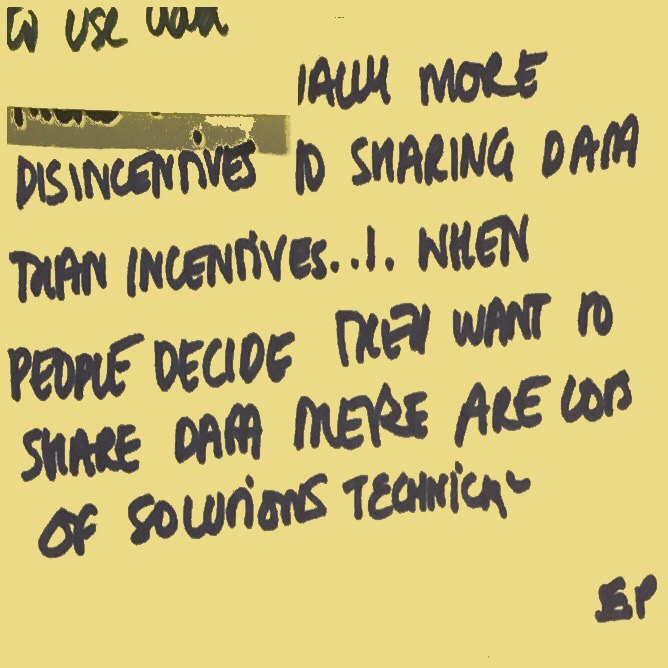 to use data
MORE
DISINCENTIVES TO SHARING DATA
THAN INCENTIVES..!. WHEN
PEOPLE DECIDE THEY WANT TO
SHARE DATA THERE ARE LOTS
OF SOLUTIONS TECHNICAL
EP